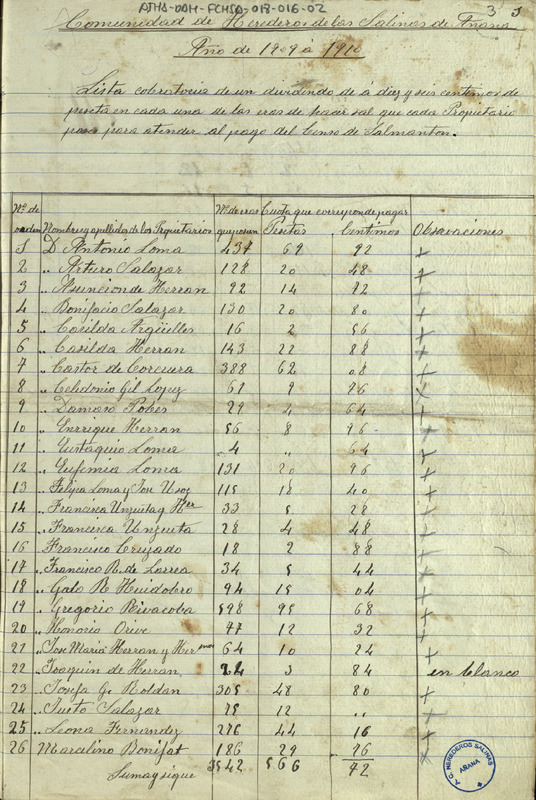 ATHA-DAH-FCHSA-013-016-02
3 3
Comunidad de Herederos de las Salinas de Añana
Año de 1909 á 1910
Lista cobratoria de un dividendo de á diez y seis centimos de
peseta en cada una de las eras de hacer sal que cada Propietario
posee para atender al pago del Censo de Salmanton.
Nº de orden Nombres y apellidos de los Propietarios Nº de eras que poseen Cuota que corresponde pagar Pesetas Centimos Observaciones
1 D Antonio Loma 437 69 92 +
2 „ Arturo Salazar 128 20 48 +
3 „ Asuncion de Herran 92 14 72 +
4 „ Bonifacio Salazar 130 20 80 +
5 „ Casilda Argüelles 16 2 56 +
6 „ Casilda Herran 143 22 88 +
7 „ Castor de Corcuera 388 62 08 +
8 „ Celedonio Gil Lopez 61 9 76 +
9 „ Damaso Pobes 29 4 64 +
10 „ Enrrique Herran 56 8 96 +
11 „ Eustaquio Loma 4 „ 64 +
12 „ Eufemia Loma 131 20 96 +
13 „ Felipa Loma y Jose Usoz 115 18 40 +
14 „ Francisca Unzueta y Her 33 5 28 +
15 „ Francisca Unzueta 28 4 48 +
16 Francisco Cruzado 18 2 88 +
17 „ Francisco R. de Larrea 34 5 44 +
18 „ Galo R Huidobro 94 15 04 +
19 „ Gregorio Rivacoba 598 95 68 +
20 „ Honorio Orive 77 12 32 +
21 „ Jose Maria Herran y Hermanos 64 10 24 +
22 „ Joaquin de Herran 24 3 84 en blanco
23 „ Josefa G. Roldan 305 48 80 +
24 „ Justo Salazar 75 12 „ +
25 „ Leona Fernandez 276 44 16 +
26 Marcelino Bonifat 186 29 76 +
Suma y sigue 3542 566 72
A.C. HEREDEROS SALINAS AÑANA